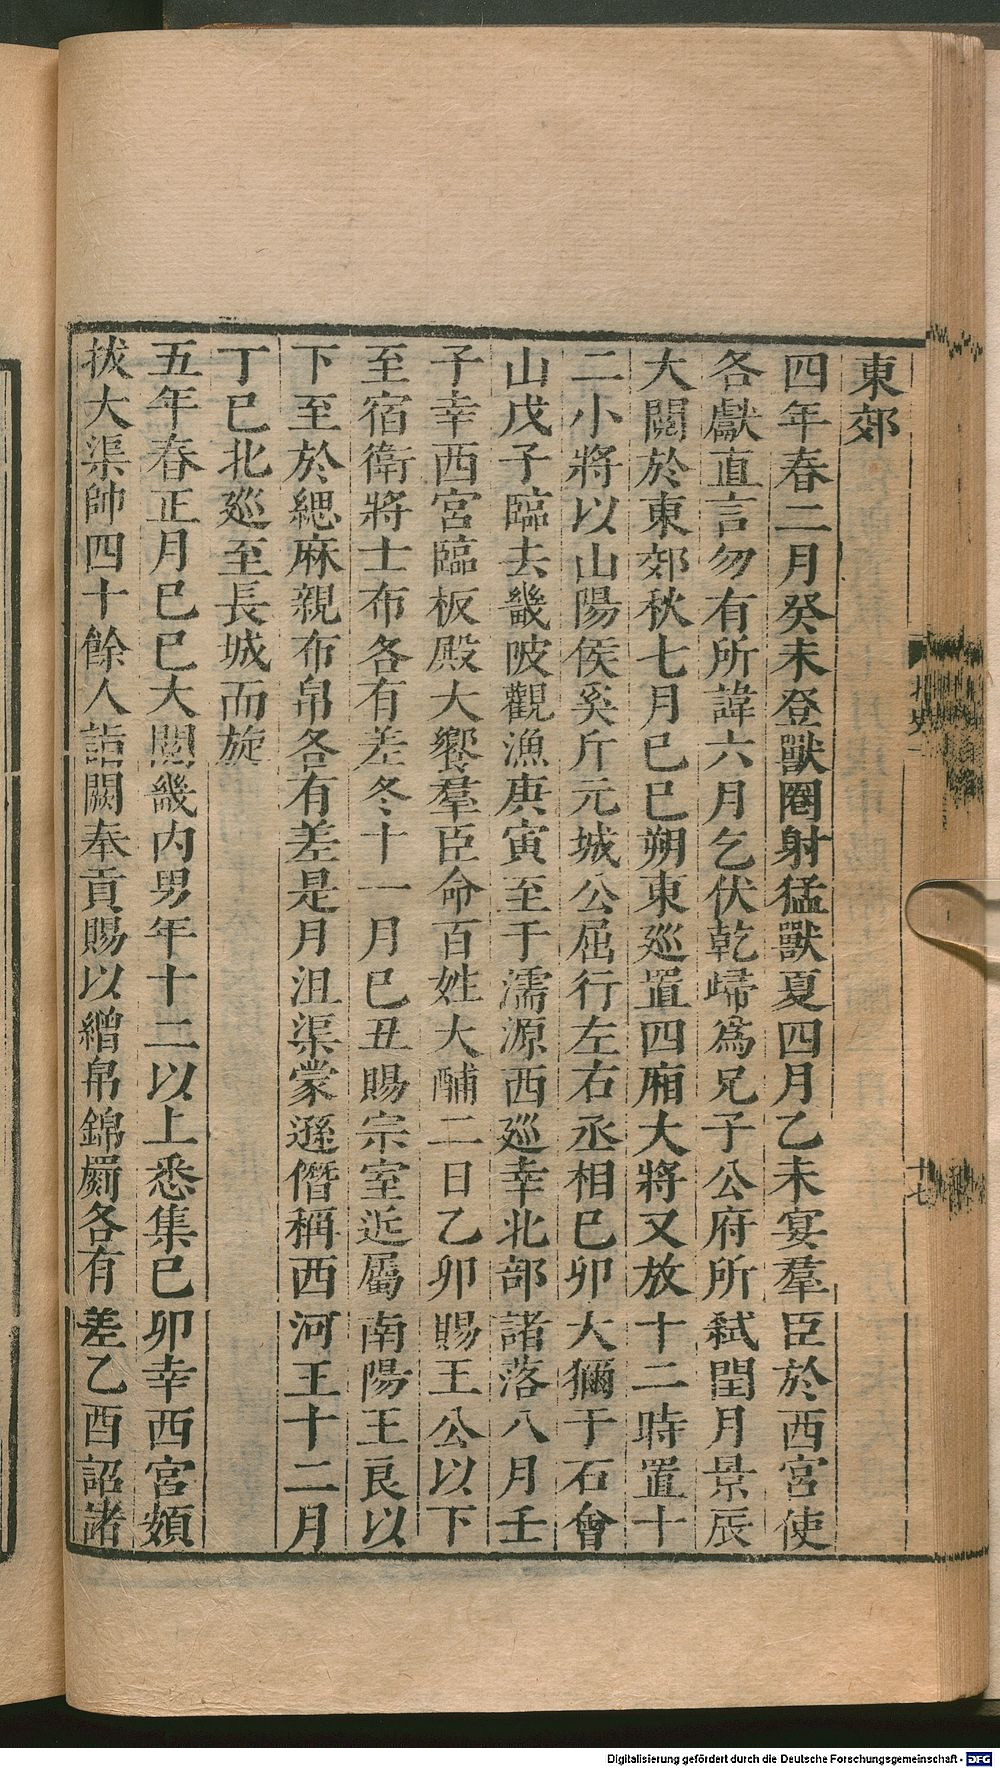 東郊
四年春二月癸未登獸圈射猛獸夏四月乙未宴羣臣於西宮使
各獻直言勿有所諱六月乞伏乾歸為兄子公府所弒閏月景辰
大閱於東郊秋七月巳巳朔東廵置四廂大將又放十二時置十
二小將以山陽侯奚斤元城公屈行左右丞相巳卯大獮于石會
山戊子臨去畿陂觀漁庚寅至于濡源西廵幸北部諸落八月壬
子幸西宮臨板殿大饗羣臣命百姓大酺二日乙卯賜王公以下
至宿衛將士布各有差冬十一月巳丑賜宗室近屬南陽王良以
下至於緦麻親布帛各有差是月沮渠蒙遜僭稱西河王十二月
丁巳北廵至長城而旋
五年春正月巳巳大閱畿内男年十二以上悉集巳卯幸西宮頞
拔大渠帥四十餘人詣闕奉貢賜以繒帛錦罽各有差乙酉詔諸
北史一
十七
Digitalisierung gefördert durch die Deutsche Forschungsgemeinschaft - DFG